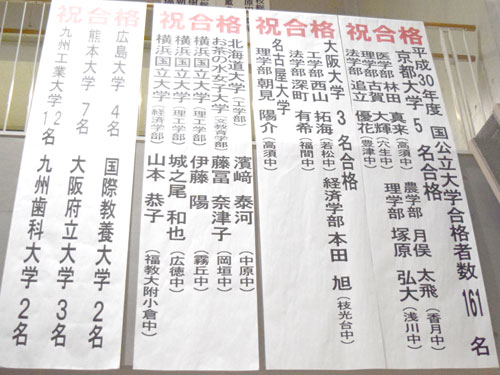 祝合格
平成30年度 国公立大学合格者数 161 名
京都大学 5 名合格
医学部 林田 真来(高須中) 農学部 月俣 太飛(香月中)
理学部 古賀 大輝(穴生中) 理学部 塚原 弘大(浅川中)
法学部 追立 優花(豊津中)
祝合格
大阪大学 3 名合格
工学部 西山 拓海(若松中) 経済学部 本田 旭(枝光台中)
法学部 深町 有希(福間中)
名古屋大学
理学部 朝見 陽介(高須中)
祝合格
北海道大学(工学部) 濱﨑 泰河(中原中)
お茶の水女子大学(文教育学部) 藤冨 奈津子(岡垣中)
横浜国立大学(理工学部) 伊藤 陽(霧丘中)
横浜国立大学(理工学部) 城之尾 和也(広徳中)
横浜国立大学(経済学部) 山本 恭子(福教大附小倉中)
祝合格
広島大学 4名 国際教養大学 2名
熊本大学 7名 大阪府立大学 3名
九州工業大学 21名 九州歯科大学 2名